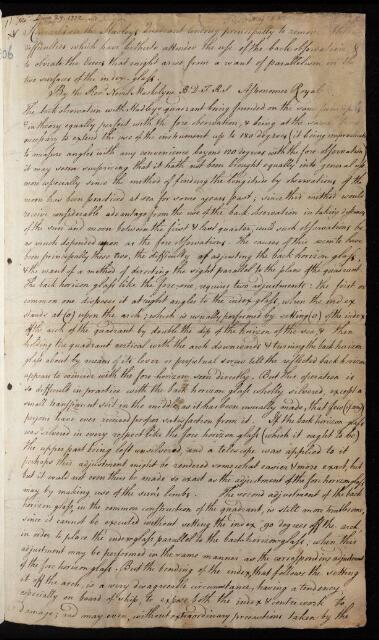 Remarks on the Hadley's Quadrant tending principally to remove the
difficulties which have hitherto attended the use of the back observation &
to obviate the errors that might arise from a want of parallelism in the
two surfaces of the index-glass.
By the Revd Nevil Maskelyne B.D. F.R.S. Astronomer Royal.
The back observation with Hadley's quadrant being founded on the same principles
& in theory equally perfect with the fore observation, & being at the same time
necessary to extend the use of the instrument up to 180 degrees (it being impracticable
to measure angles with any convenience beyond 120 degrees with the fore observation)
it may seem surprising that it hath not been brought equally into general use
more especially since the method of finding the longitude by observations of the
moon has been practised at sea for some years past; since this method would
receive considerable advantage from the use of the back observation in taking distances
of the sun and moon between the first & last quarter, could such observations be
as much depended upon as the fore observations. The causes of this seem to have
been principally these two, the difficulty of adjusting the back horizon glass,
& the want of a method of directing the sight parallel to the plane of the quadrant.
The back horizon glass like the fore-one, requires two adjustments: the first or
common one disposes it at right angles to the index glass, when the index
stands at (0) upon the arch; which is usually performed by setting (0) of the index
off the arch of the quadrant by double the dip of the horizon of the sea, & then
holding the quadrant vertical with the arch downwards & turning the back horizon
glass about by means of its lever or perpetual screw till the reflected back horizon
appears to coincide with the fore horizon seen directly. But this operation is
so difficult in practice with the back horizon glass wholly silvered, except a
small transparent slit in the middle as it has been usually made, that few (if any)
persons have ever received proper satisfaction from it. If the back horizon glass
was silvered in every respect like the fore horizon glass (which it ought to be)
the upper part being left unsilvered, and a telescope was applied to it
perhaps this adjustment might be rendered somewhat easier & more exact, but
but it could not even thus be made so exact as the adjustment of the fore horizon glass
may by making use of the suns limbs. The second adjustment of the back
horizon glass in the common construction of the quadrant, is still more troublesome
since it cannot be executed without setting the index 90 degrees off the arch,
in order to place the index glass parallel to the back horizon glass; when this
adjustment may be performed in the same manner as the corresponding adjustment
of the fore horizon glass. But the bending of the index, that follows the setting
it off the arch, is a very disagreeable circumstance, having a tendency,
especially on board of ship to expose both the index & centre work to
damage; and may even, without extraordinary precautions taken by the